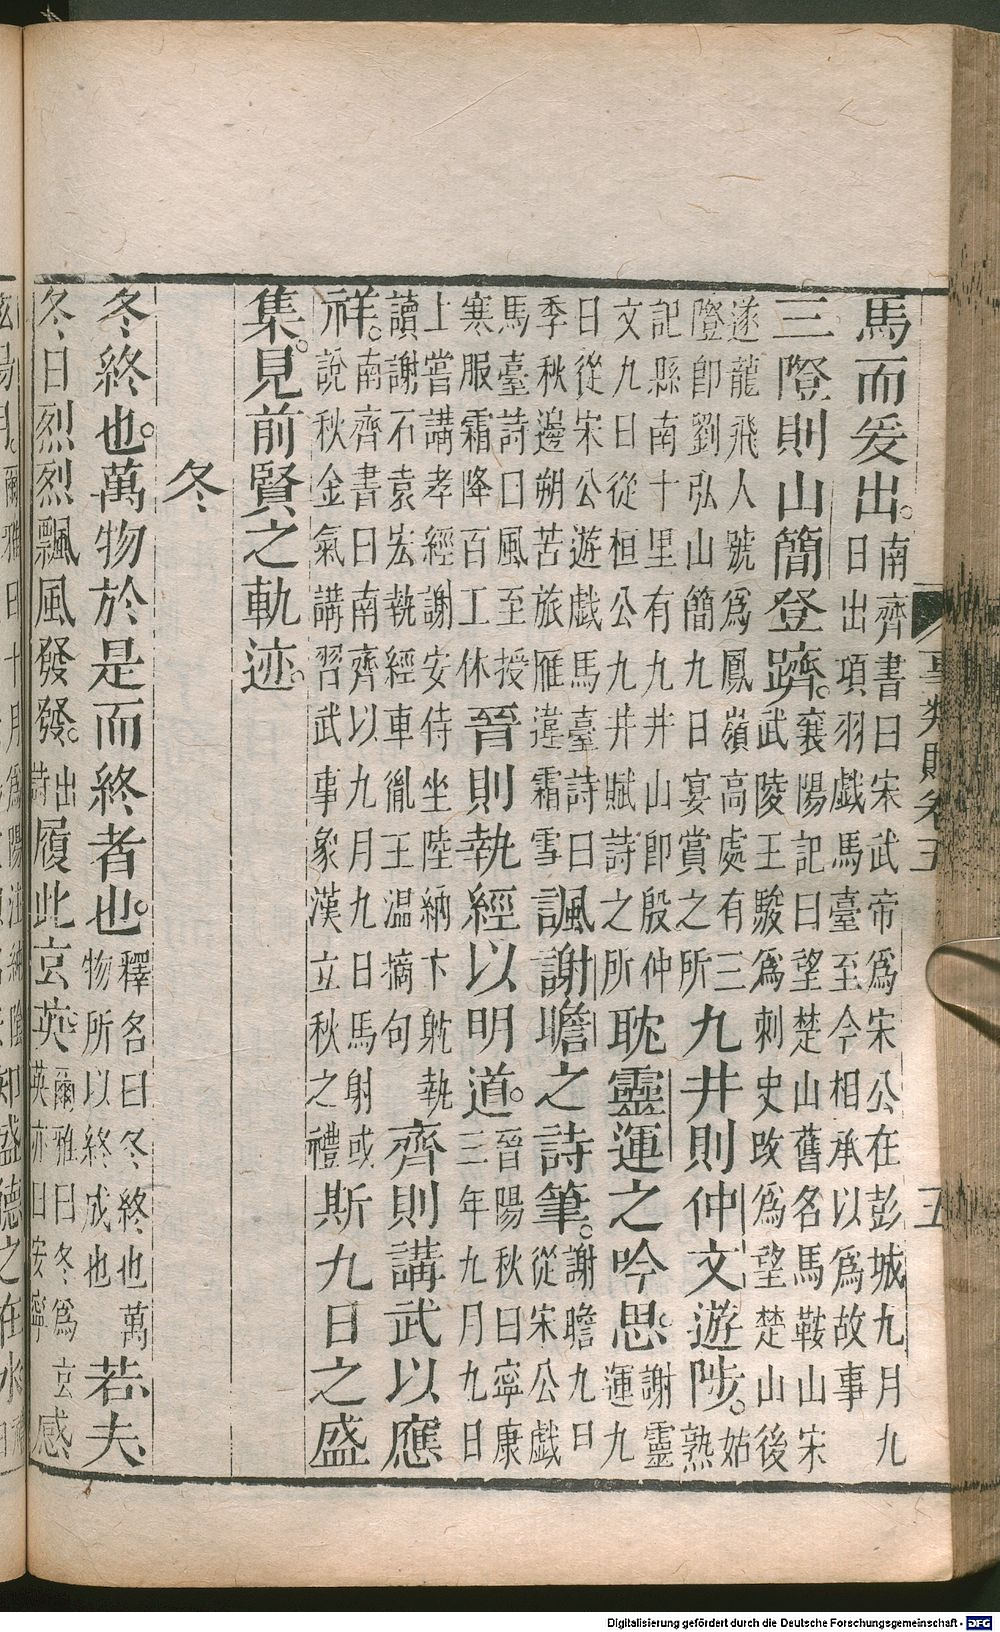 馬而爰出。南齊書曰宋武帝爲宋公在彭城九月九
日出項羽戲馬臺至今相承以爲故事
三隥則山簡登躋。襄陽記曰望楚山舊名馬鞍山宋
武陵王駿爲刺史改爲望楚山後
遂龍飛人號爲鳳嶺高處有三
隥即劉弘山簡九日宴賞之所
九井則仲文遊陟。姑
熟
記縣南十里有九井山即殷仲
文九日從桓公九井賦詩之所
耽靈運之吟思。謝靈
運九
日從宋公遊戲馬臺詩曰
季秋邊朔苦旅雁違霜雪
諷謝瞻之詩筆。謝瞻九日
從宋公戲
馬臺詩曰風至授
寒服霜降百工休
晉則執經以明道。晉陽秋曰寧康
三年九月九日
上嘗講孝經謝安侍坐陸納卞躭執
讀謝石袁宏執經車胤王温摘句
齊則講武以應
祥。南齊書曰南齊以九月九日馬射或
說秋金氣講習武事象漢立秋之禮
斯九日之盛
集。見前賢之軌迹。
冬
冬終也。萬物於是而終者也。釋名曰冬終也萬
物所以終成也
若夫
冬日烈烈飄風發發。出
詩
履此玄英。爾雅曰冬爲玄
英亦曰安寧
感
事類賦卷五
五
Digitalisierung gefördert durch die Deutsche Forschungsgemeinschaft - DFG